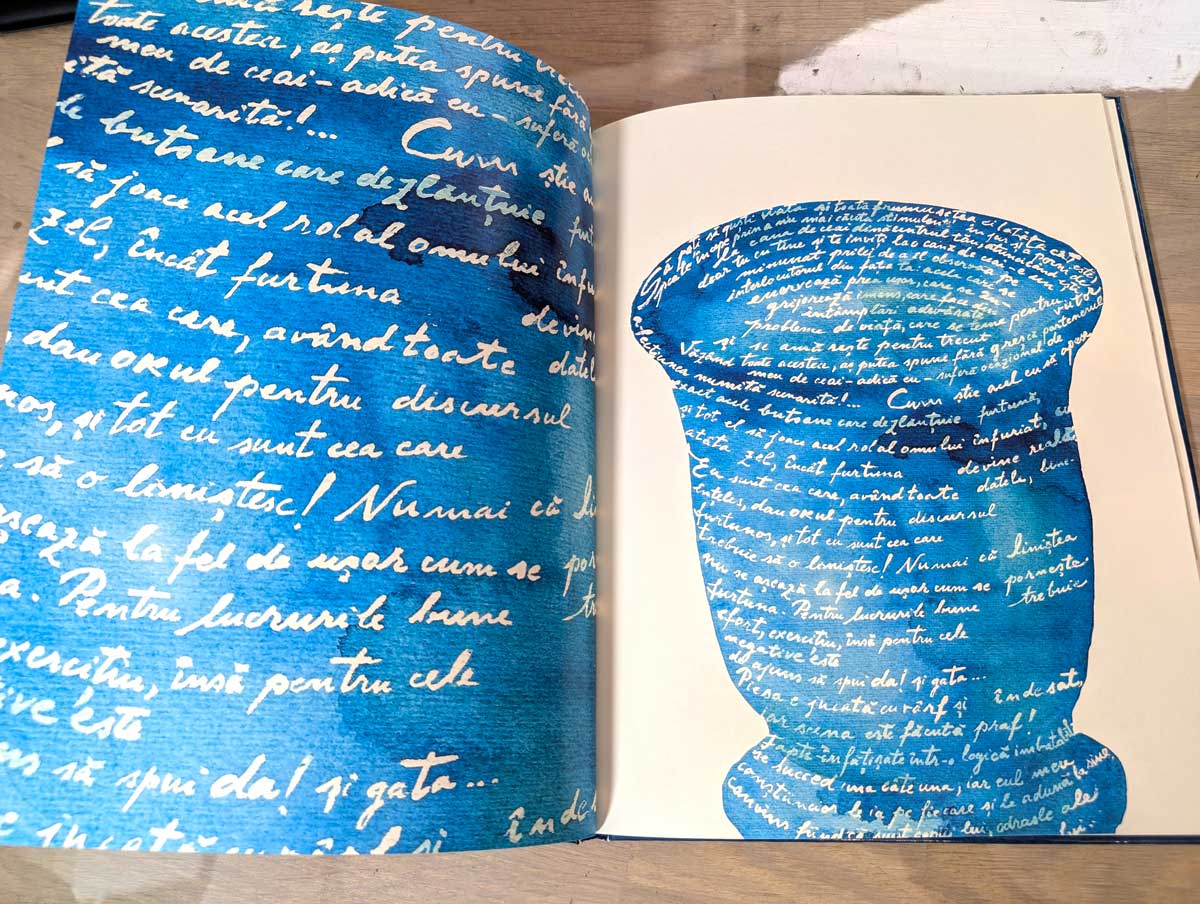 sește pentru
toate acestea, aș putea spune fără
meu de ceai-adică eu- suferă
ită sunarită!...
Cum știe
le butoane care dezlănțuie
să joace acel rol al omului înfu
zel, încât furtuna
devine
unt cea care, având toate datele
dau OKul pentru discursul
nos, și tot eu sunt cea care
să o liniștesc! Numai că li
așează la fel de ușor cum se por
a. Pentru lucrurile bune
tr
exercițiu, însă pentru cele
tive este
uns să spui da! și gata...
înde
e jucată cu vârf și
să guști viața și toată frumusețea ei
poate începe prin a nu mai căuta stimulente în jur și
la cana de ceai din
doar tu cu tine și te inviți la o cană de ceai, e un
minunat prilej de a se observa pe
interlocutorul din fața ta: acel care se
enervează prea ușor, care se
grijorează imens, care face din
întâmplări adevărate
probleme de viață, care se teme pentru viitor
și se amărăște pentru trecut
Văzând toate acestea, aș putea spune fără greș că partenerul
meu de ceai-adică eu- suferă ocazional de
afecțiunea numită sunarită!...
Cum știe acel eu să apese
exact acele butoane care dezlănțuie furtună,
și tot el să joace acel rol al omului înfuriat, cu
atâta zel, încât furtuna devine reală
Eu sunt cea care, având toate datele, bine-
ențeles, dau OKul pentru discursul
furtunos, și tot eu sunt cea care
trebuie să o liniștesc! Numai că liniștea
nu se așează la fel de ușor cum se pornește
furtuna. Pentru lucrurile bune trebuie
efort, exercițiu, însă pentru cele
negative este
de ajuns să spui da! și gata...
Piesa e jucată cu vârf și îndesat,
iar scena este făcută praf!
Fapte înfățișate într-o logică imbatabilă
se succed una câte una, iar eul meu
conștiincios le ia pe fiecare și le adună la sine
convins fiind că sunt copiii lui, odrasle ale
lui